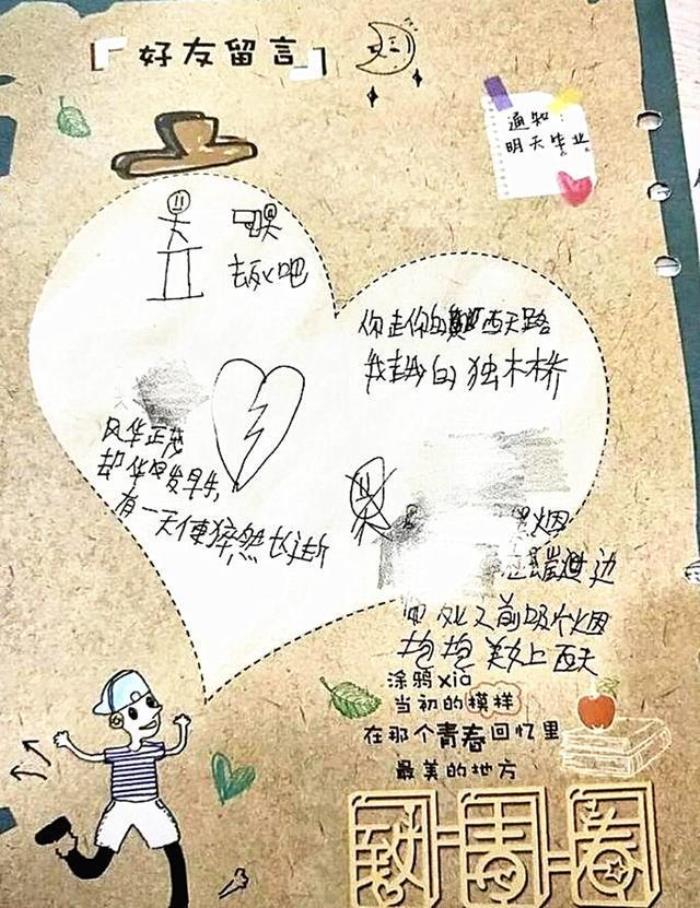 好友留言
通知:
明天毕业
去死吧
你走你的西天路
我走我的独木桥
风华正茂
却华发早生,
有一天便猝然长逝
烟
边
死之前吸个烟
抱抱美女上西天
涂鸦xià
当初的模样
在那个青春回忆里
最美的地方
致青春